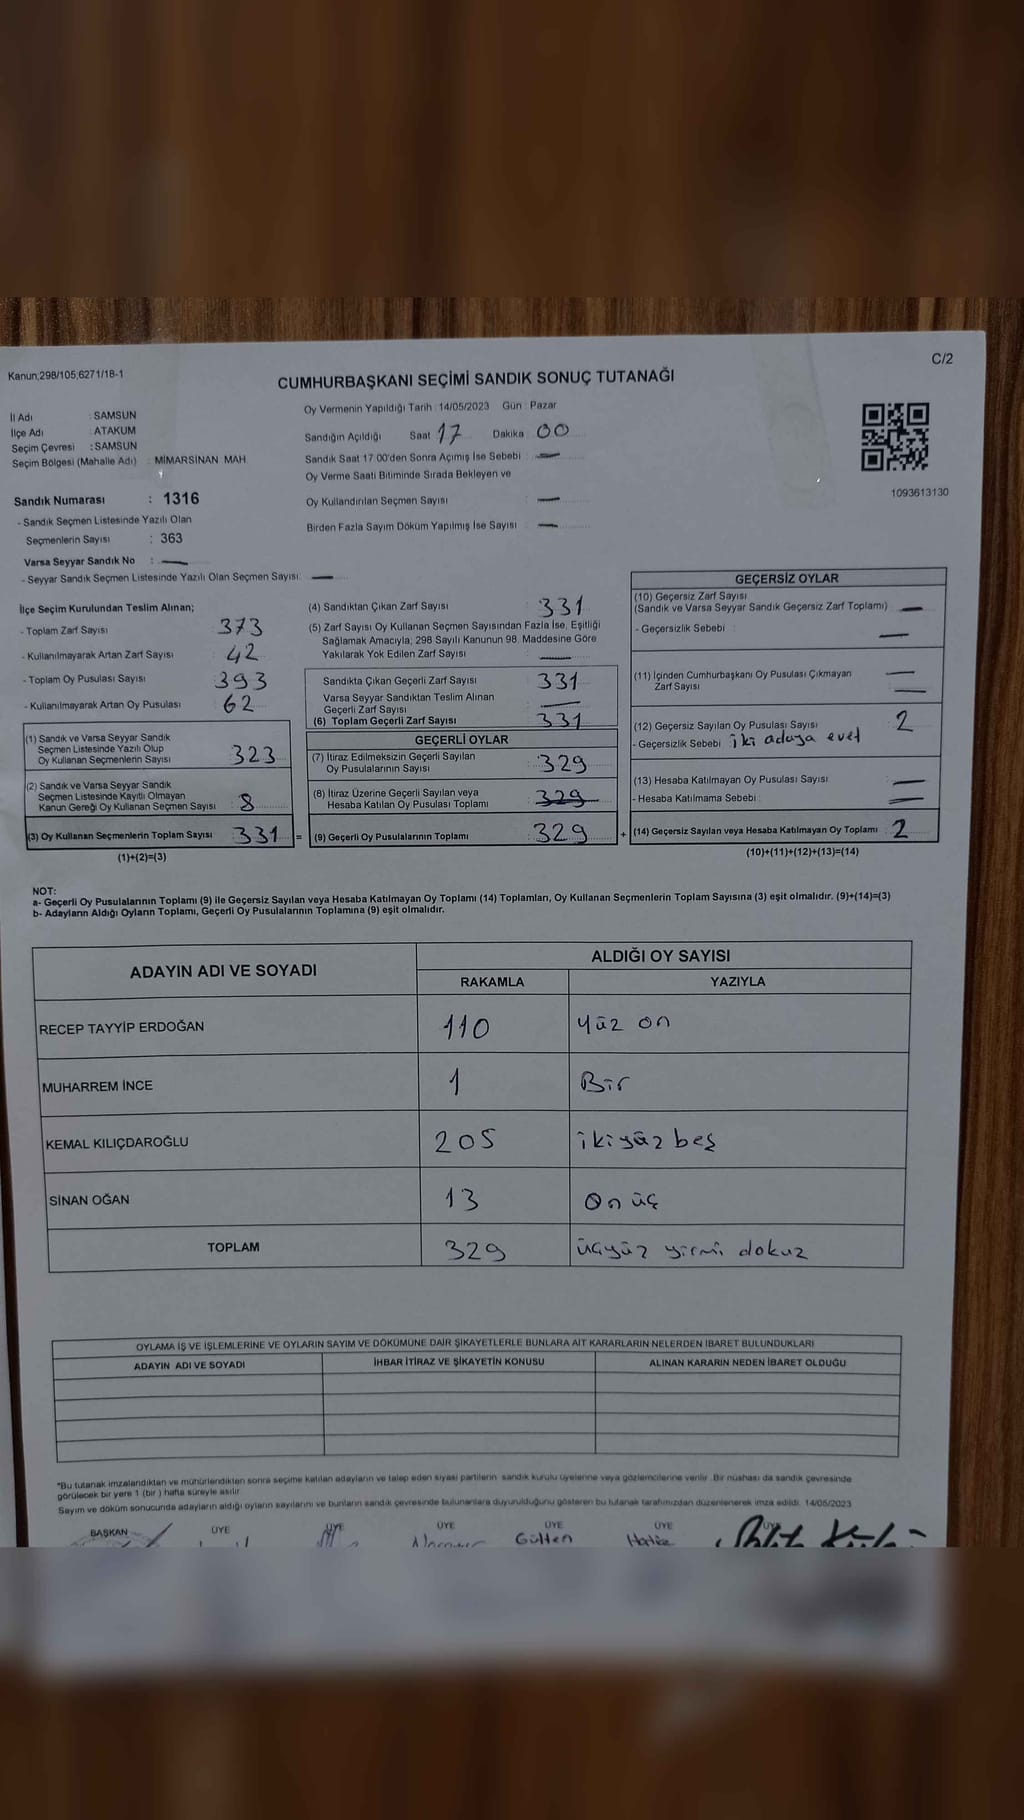 C/2
Kanun;298/105,6271/18-1
CUMHURBAŞKANI SEÇİMİ SANDIK SONUÇ TUTANAĞI
İl Adı : SAMSUN
İlçe Adı : ATAKUM
Seçim Çevresi : SAMSUN
Seçim Bölgesi (Mahalle Adı) : MİMARSİNAN MAH.
Sandık Numarası : 1316
- Sandık Seçmen Listesinde Yazılı Olan
Seçmenlerin Sayısı : 363
Varsa Seyyar Sandık No : —
- Seyyar Sandık Seçmen Listesinde Yazılı Olan Seçmen Sayısı: —
Oy Vermenin Yapıldığı Tarih : 14/05/2023 Gün : Pazar
Sandığın Açıldığı Saat 17 Dakika 00
Sandık Saat 17:00'den Sonra Açımış İse Sebebi : —
Oy Verme Saati Bitiminde Sırada Bekleyen ve
Oy Kullandırılan Seçmen Sayısı : —
Birden Fazla Sayım Döküm Yapılmış İse Sayısı : —
1093613130
İlçe Seçim Kurulundan Teslim Alınan;
- Toplam Zarf Sayısı : 373
- Kullanılmayarak Artan Zarf Sayısı : 42
- Toplam Oy Pusulası Sayısı : 393
- Kullanılmayarak Artan Oy Pusulası : 62
(1) Sandık ve Varsa Seyyar Sandık
Seçmen Listesinde Yazılı Olup
Oy Kullanan Seçmenlerin Sayısı : 323
(2) Sandık ve Varsa Seyyar Sandık
Seçmen Listesinde Kayıtlı Olmayan
Kanun Gereği Oy Kullanan Seçmen Sayısı : 8
(3) Oy Kullanan Seçmenlerin Toplam Sayısı : 331 =
(1)+(2)=(3)
(4) Sandıktan Çıkan Zarf Sayısı : 331
(5) Zarf Sayısı Oy Kullanan Seçmen Sayısından Fazla İse, Eşitliği
Sağlamak Amacıyla; 298 Sayılı Kanunun 98. Maddesine Göre
Yakılarak Yok Edilen Zarf Sayısı : —
Sandıkta Çıkan Geçerli Zarf Sayısı : 331
Varsa Seyyar Sandıktan Teslim Alınan
Geçerli Zarf Sayısı : —
(6) Toplam Geçerli Zarf Sayısı : 331
GEÇERLİ OYLAR
(7) İtiraz Edilmeksizin Geçerli Sayılan
Oy Pusulalarının Sayısı : 329
(8) İtiraz Üzerine Geçerli Sayılan veya
Hesaba Katılan Oy Pusulası Toplamı : 329
(9) Geçerli Oy Pusulalarının Toplamı : 329 +
GEÇERSİZ OYLAR
(10) Geçersiz Zarf Sayısı
(Sandık ve Varsa Seyyar Sandık Geçersiz Zarf Toplamı) : —
- Geçersizlik Sebebi : —
(11) İçinden Cumhurbaşkanı Oy Pusulası Çıkmayan
Zarf Sayısı : —
(12) Geçersiz Sayılan Oy Pusulası Sayısı : 2
- Geçersizlik Sebebi : iki adaya evet
(13) Hesaba Katılmayan Oy Pusulası Sayısı : —
- Hesaba Katılmama Sebebi : —
(14) Geçersiz Sayılan veya Hesaba Katılmayan Oy Toplamı : 2
(10)+(11)+(12)+(13)=(14)
NOT:
a- Geçerli Oy Pusulalarının Toplamı (9) ile Geçersiz Sayılan veya Hesaba Katılmayan Oy Toplamı (14) Toplamları, Oy Kullanan Seçmenlerin Toplam Sayısına (3) eşit olmalıdır. (9)+(14)=(3)
b- Adayların Aldığı Oyların Toplamı, Geçerli Oy Pusulalarının Toplamına (9) eşit olmalıdır.
ADAYIN ADI VE SOYADI ALDIĞI OY SAYISI
RAKAMLA YAZIYLA
RECEP TAYYİP ERDOĞAN 110 yüz on
MUHARREM İNCE 1 Bir
KEMAL KILIÇDAROĞLU 205 ikiyüz beş
SİNAN OĞAN 13 On üç
TOPLAM 329 üçyüz yirmi dokuz
OYLAMA İŞ VE İŞLEMLERİNE VE OYLARIN SAYIM VE DÖKÜMÜNE DAİR ŞİKAYETLERLE BUNLARA AİT KARARLARIN NELERDEN İBARET BULUNDUKLARI
ADAYIN ADI VE SOYADI İHBAR İTİRAZ VE ŞİKAYETİN KONUSU ALINAN KARARIN NEDEN İBARET OLDUĞU
*Bu tutanak imzalandıktan ve mühürlendikten sonra seçime katılan adayların ve talep eden siyasi partilerin sandık kurulu üyelerine veya gözlemcilerine verilir. Bir nüshası da sandık çevresinde
görülecek bir yere 1 (bir) hafta süreyle asılır.
Sayım ve döküm sonucunda adayların aldığı oyların sayılarını ve bunların sandık çevresinde bulunanlara duyurulduğunu gösteren bu tutanak tarafımızdan düzenlenerek imza edildi. 14/05/2023
BAŞKAN ÜYE ÜYE ÜYE ÜYE ÜYE ÜYE
Gülten Hatice